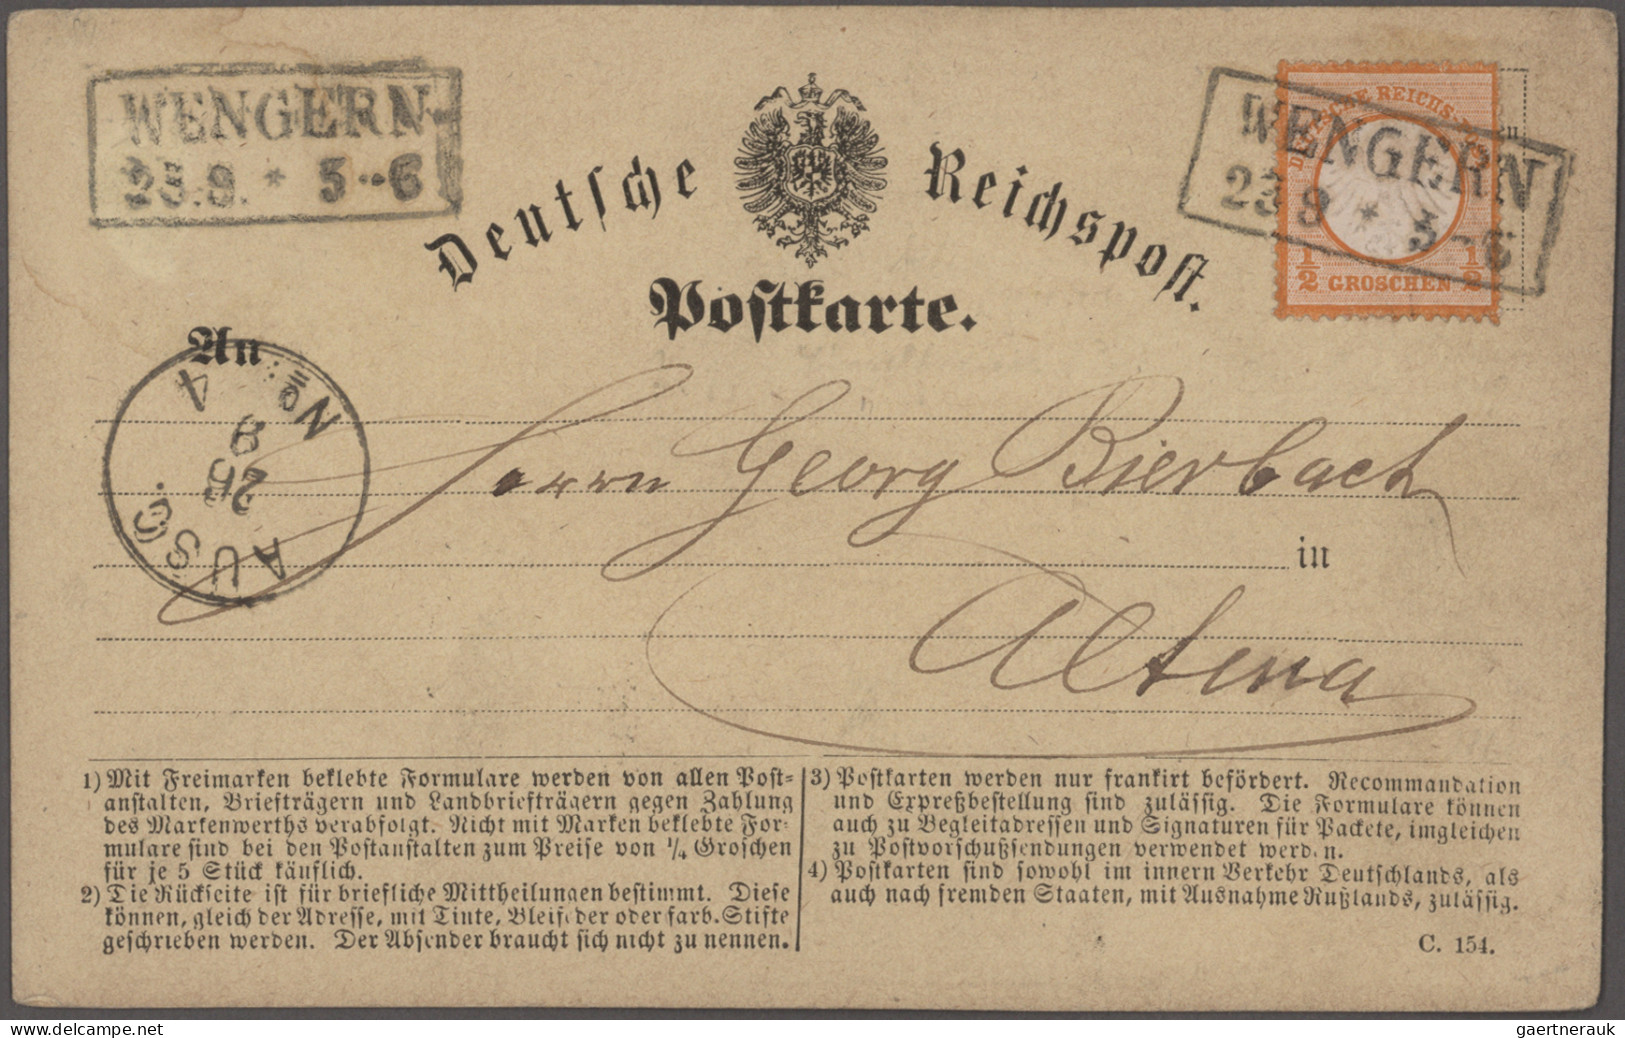 WENGERN
23.9. * 5-6
Deutsche Reichspost.
Postkarte.
DEUTSCHE REICHS-
1/2 GROSCHEN 1/2
WENGERN
23 9 * 5-6
An
AUSG.
25
9
No. 4
Herrn Georg Bierbach
in
Altena
1) Mit Freimarken beklebte Formulare werden von allen Post-
anstalten, Briefträgern und Landbriefträgern gegen Zahlung
des Markenwerths verabfolgt. Nicht mit Marken beklebte For-
mulare sind bei den Postanstalten zum Preise von 1/4 Groschen
für je 5 Stück käuflich.
2) Die Rückseite ist für briefliche Mittheilungen bestimmt. Diese
können, gleich der Adresse, mit Tinte, Bleifeder oder farb. Stifte
geschrieben werden. Der Absender braucht sich nicht zu nennen.
3) Postkarten werden nur frankirt befördert. Recommandation
und Expreßbestellung sind zulässig. Die Formulare können
auch zu Begleitadressen und Signaturen für Packete, imgleichen
zu Postvorschußsendungen verwendet werden.
4) Postkarten sind sowohl im innern Verkehr Deutschlands, als
auch nach fremden Staaten, mit Ausnahme Rußlands, zulässig.
C. 154.
delcampe.net
gaertnerauk